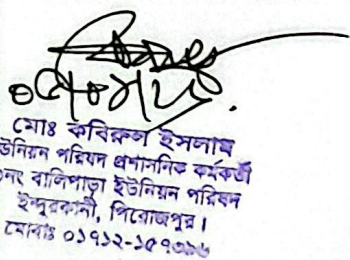 মোঃ কবিরুল ইসলাম
ইউনিয়ন পরিষদ প্রশাসনিক কর্মকর্তা
নং বালিপাড়া ইউনিয়ন পরিষদ
ইন্দুরকানী, পিরোজপুর।
মোবাঃ ০১৭১২-১৫৭৩৯৬